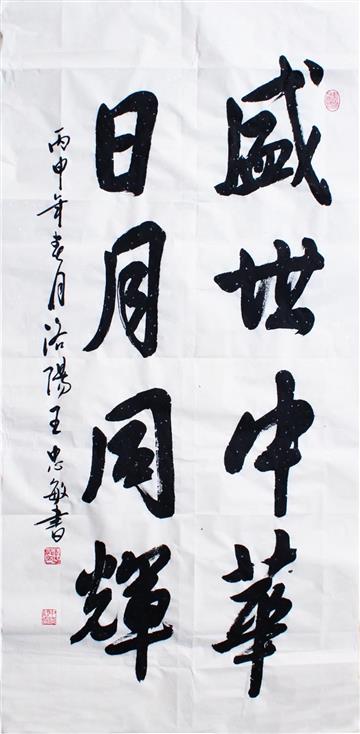 盛世中華
日月同輝
丙申年春月洛陽王忠敏書